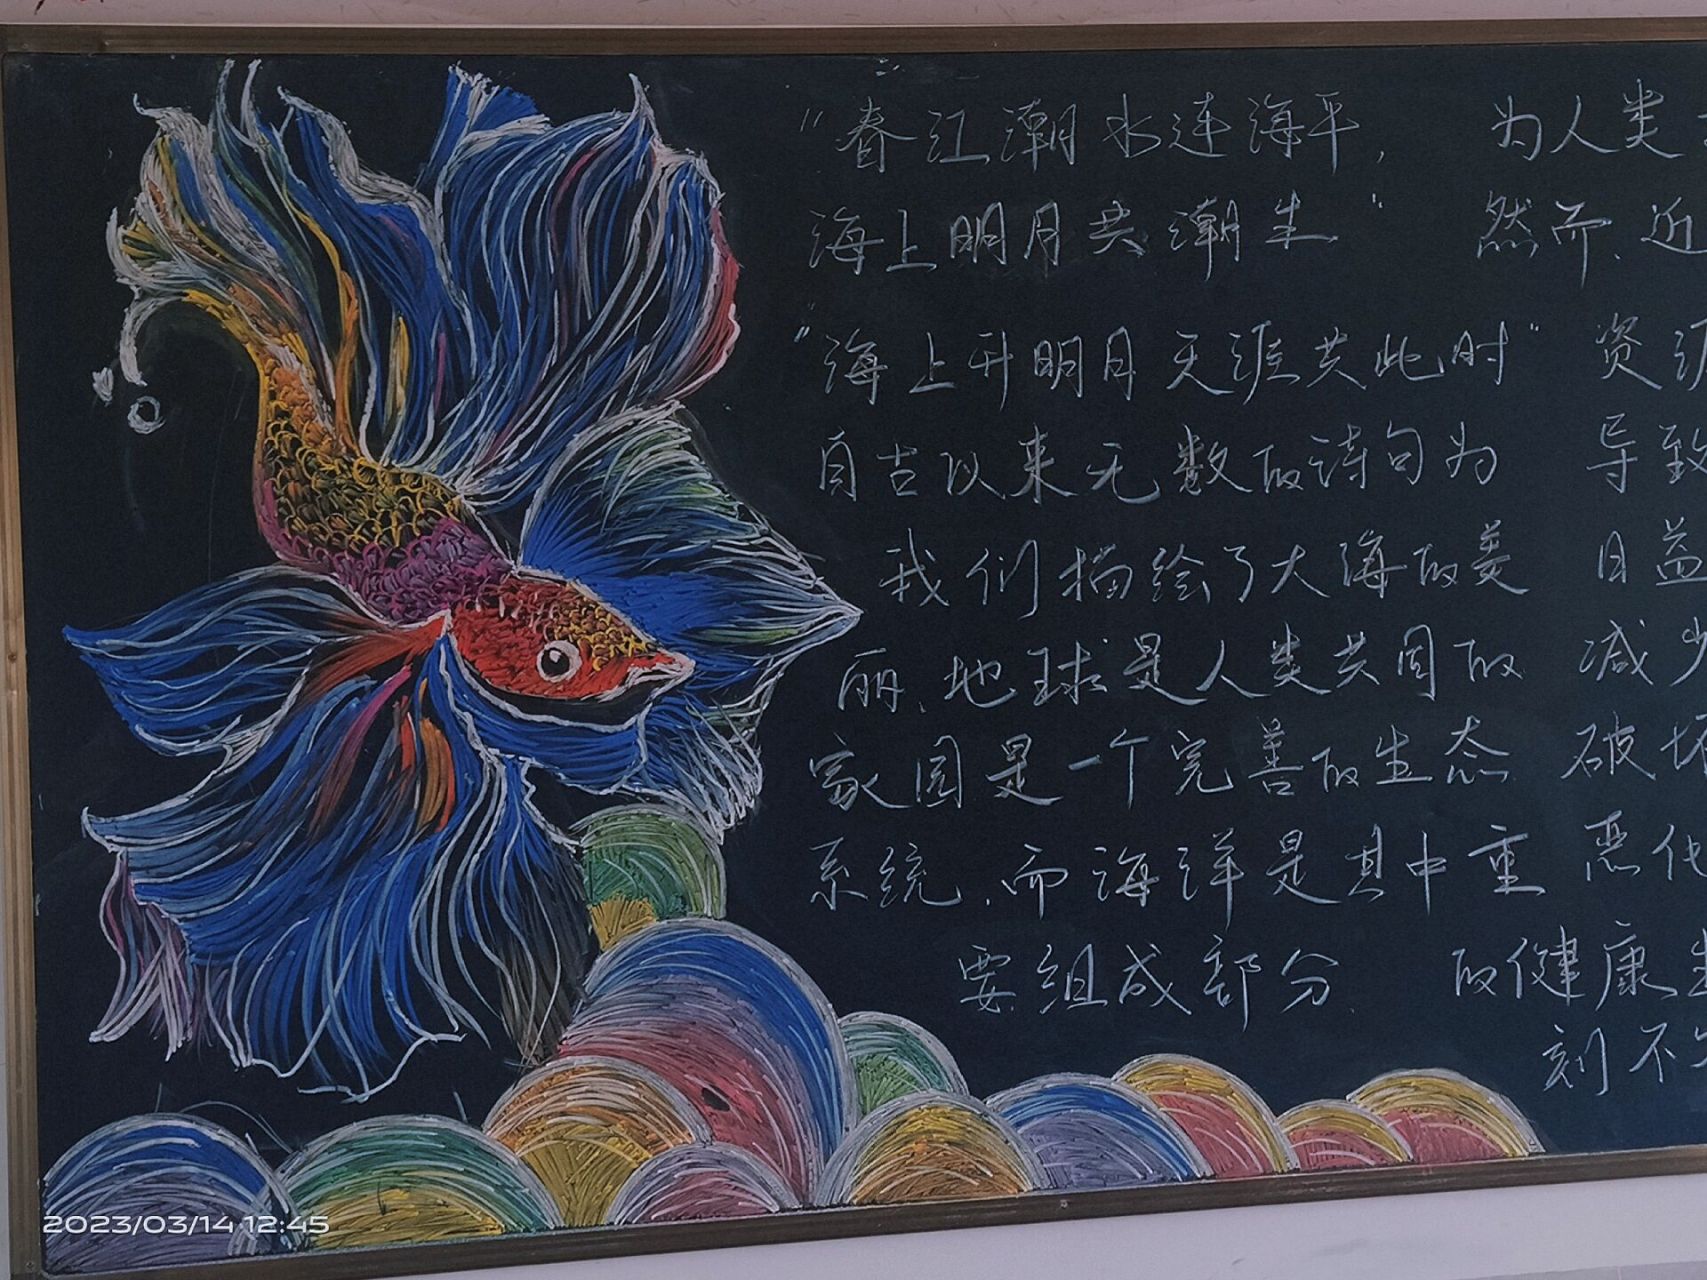 “春江潮水连海平，
海上明月共潮生”
“海上升明月天涯共此时”
自古以来无数的诗句为
我们描绘了大海的美
丽、地球是人类共同的
家园是一个完善的生态
系统，而海洋是其中重
要组成部分.
为人类
然而、近
资源
导致
日益
减少
破坏
恶化
的健康
刻不
2023/03/14 12:45